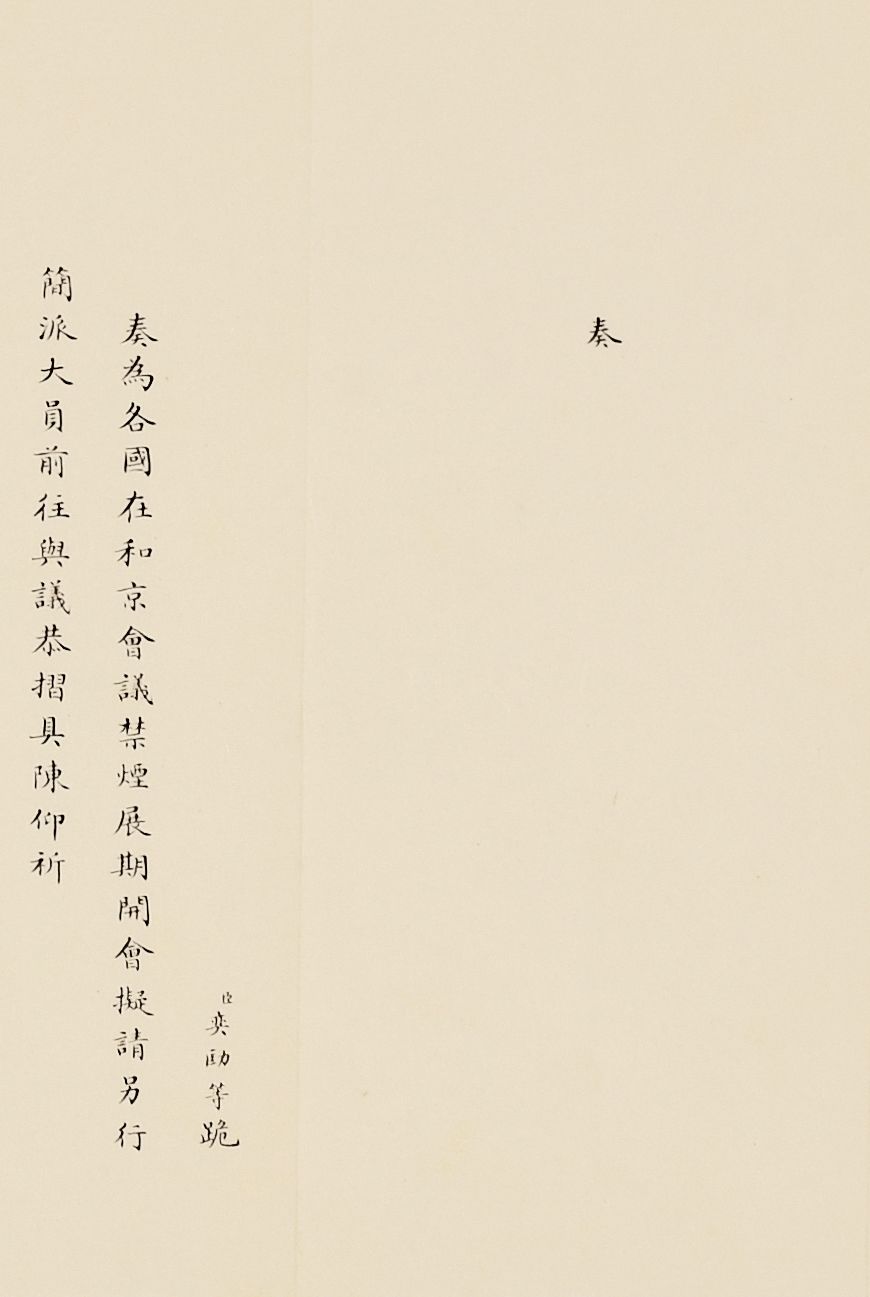 奏
臣奕劻等跪
奏為各國在和京會議禁煙展期開會擬請另行
簡派大員前往與議恭摺具陳仰祈